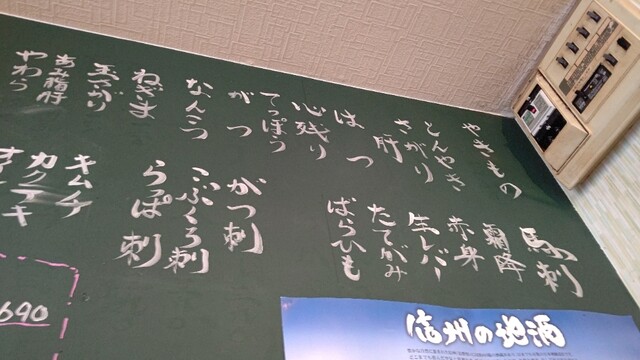 やきもの
とんやき
さがり
肝
はつ
心残り
てっぽう
がつ
なんこつ
ねぎま
玉サガリ
あみ脂肝
やわら
馬刺
霜降
赤身
生レバー
たてがみ
ばらひも
がつ刺
こぶくろ刺
らっぱ刺
キムチ
カクテキ
690
信州の地酒